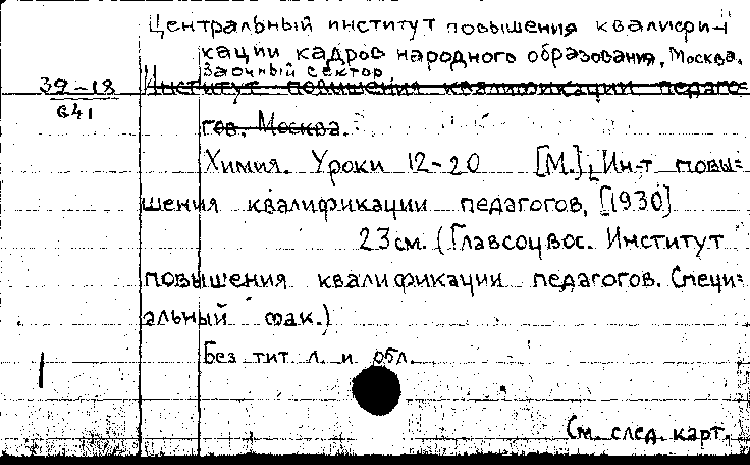 Центральный институт повышения квалифи-
кации кадров народного образования, Москва.
Заочный сектор
39-18
641
Институт повышения квалификации педаго-
гов. Москва.
Химия. Уроки 12-20 [М.], Ин-т повы-
шения квалификации педагогов, [1930]
23 см. (Главсоцвос. Институт
повышения квалификации педагогов. Специ-
альный фак.)
Без тит. л. и обл.
См. след. карт.